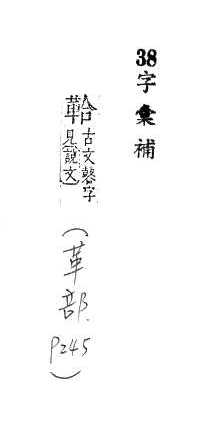 38字彙補
鞈 古文字
見說文
（革部.
P245）